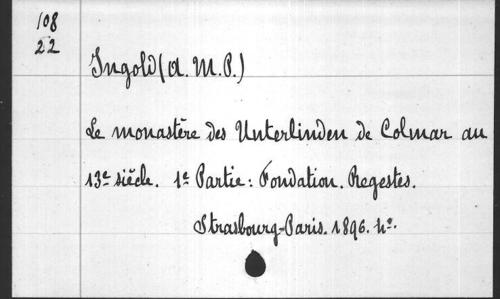 108
22
Ingold (A. M. P.)
Le monastère des Unterlinden de Colmar au
13e siècle. 1e Partie: Fondation. Regestes.
Strasbourg-Paris. 1896. 4o.